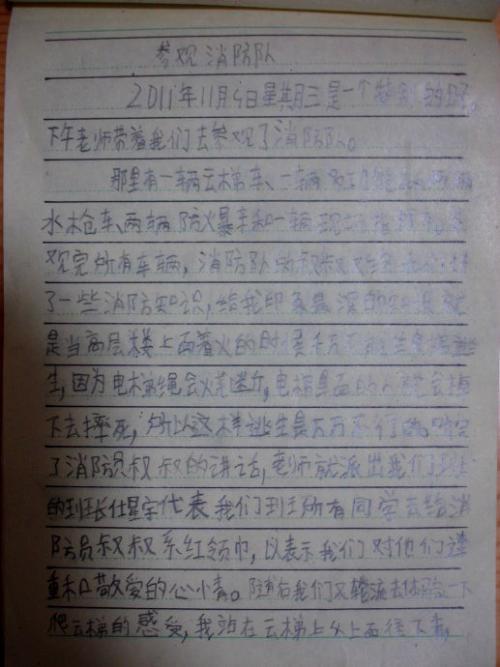 参观消防队
2011年11月9日星期三是一个特别的日子。
下午老师带着我们去参观了消防队。
那里有一辆云梯车、一辆
水枪车、两辆防火暴车和一辆现场指挥车。
观完所有车辆，消防队的叔叔又给我们讲
了一些消防知识，给我印象最深的知识就
是当高层楼上面着火的时候千万不要坐电梯逃
生，因为电梯绳会火范迷斤，电梯里面的人就会摔
下去摔死，所以这样逃生是万万不行的。听完
了消防员叔叔的讲话，老师就派出我们班
的班长仕星宇代表我们班所有同学去给消
防员叔叔系红领巾，以表示我们对他们遵
重和敬爱的心情。随后我们又轮流去体验一下
爬云梯的感受，我站在云梯上从上面往下看，